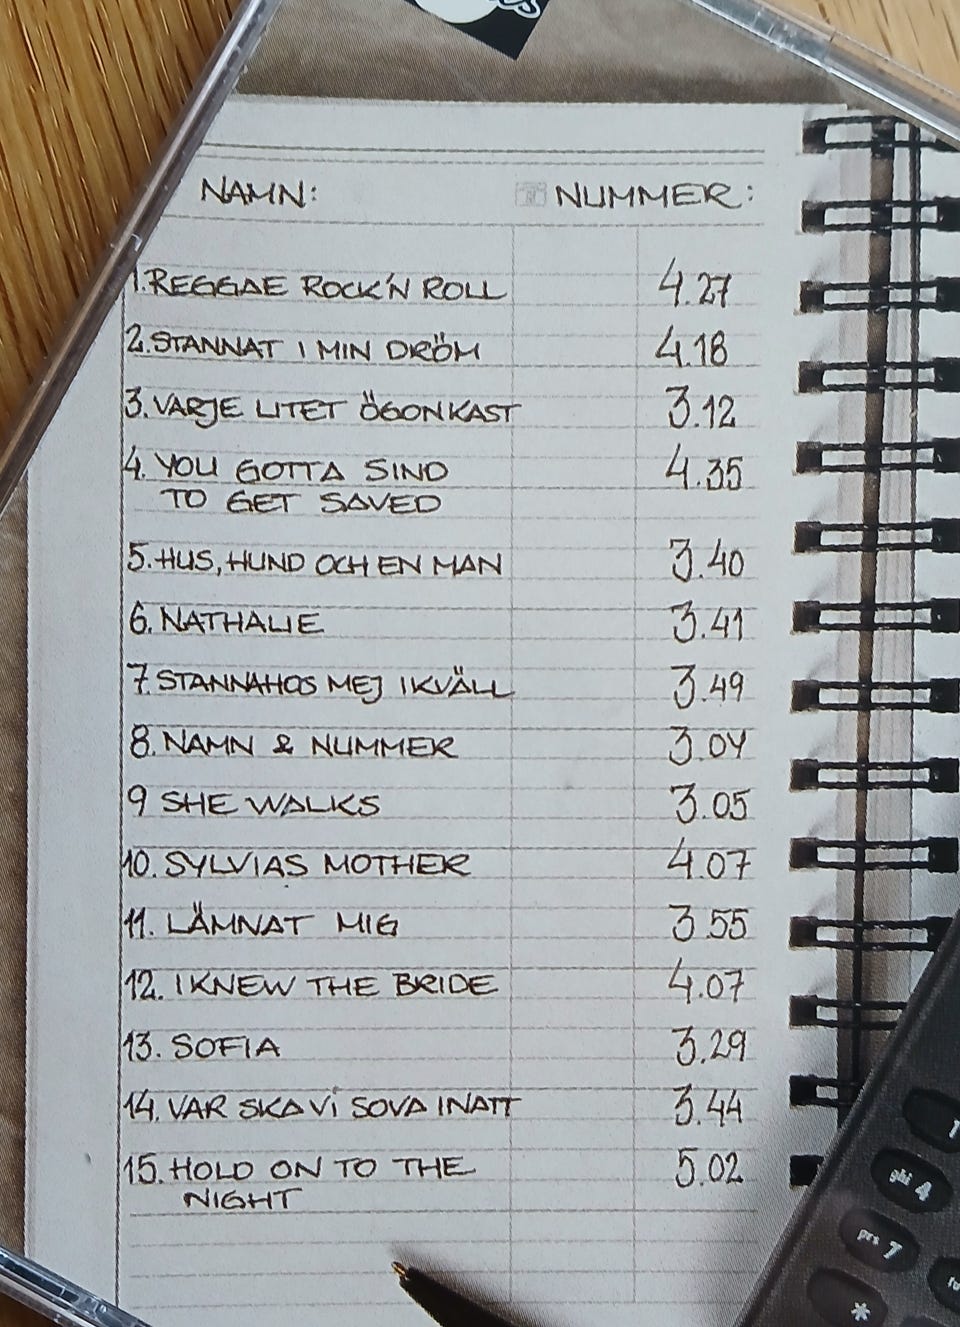 NAMN: NUMMER:
1. REGGAE ROCK'N ROLL 4.27
2. STANNAT I MIN DRÖM 4.18
3. VARJE LITET ÖGONKAST 3.12
4. YOU GOTTA SIND 4.35
TO GET SAVED
5. HUS, HUND OCH EN MAN 3.40
6. NATHALIE 3.41
7. STANNA HOS MEJ IKVÄLL 3.49
8. NAMN & NUMMER 3.04
9 SHE WALKS 3.05
10. SYLVIAS MOTHER 4.07
11. LÄMNAT MIG 3.55
12. I KNEW THE BRIDE 4.07
13. SOFIA 3.29
14. VAR SKA VI SOVA INATT 3.44
15. HOLD ON TO THE 5.02
NIGHT
1
ghi 4
prs 7
*